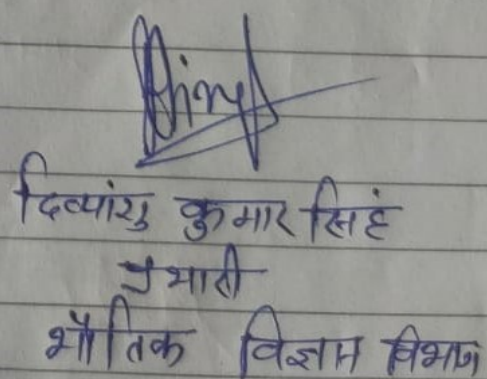 दिव्यांशु कुमार सिहं
प्रभारी
भौतिक विज्ञान विभाग